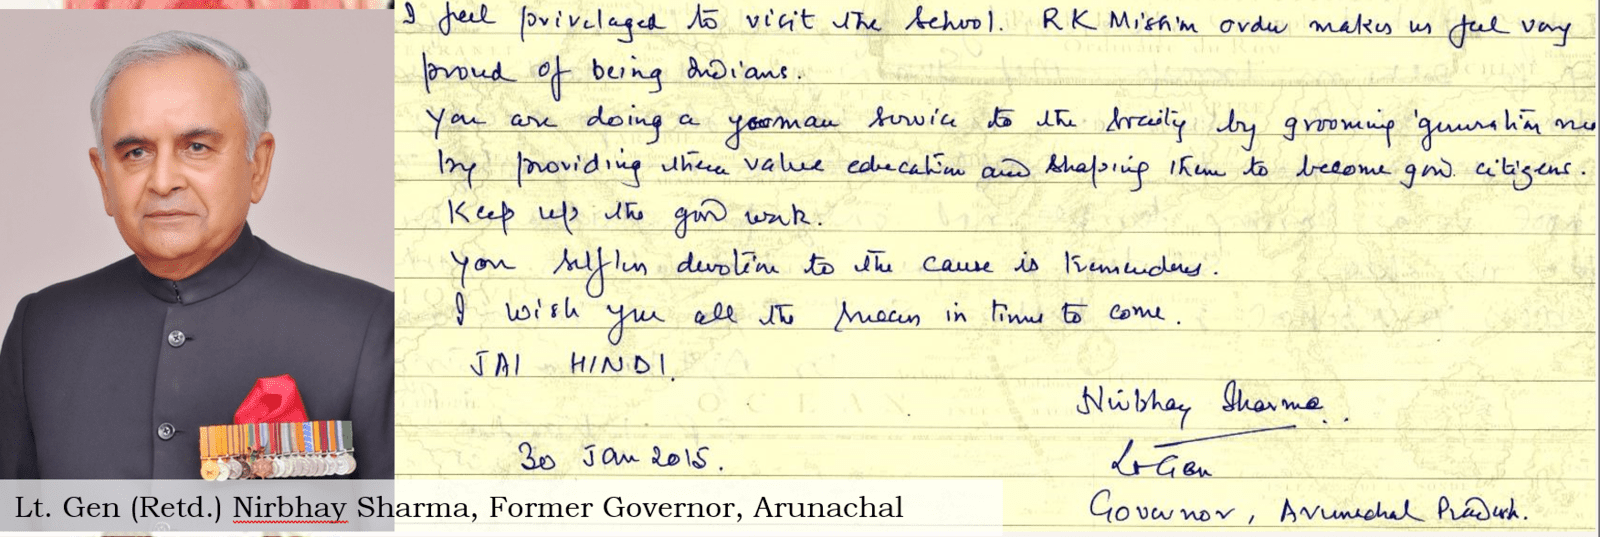 I feel privelaged to visit the School. RK Mission order makes us feel very
proud of being Indians.
You are doing a yeoman service to the Society by grooming 'generation nex
by providing them value education and shaping them to become good citizens.
Keep up the good work.
Your selfless devotion to the cause is tremendous.
I wish you all the success in times to come.
JAI HIND!
Nirbhay Sharma
30 Jan 2015.
Lt Gen
Governor, Arunachal Pradesh.
Lt. Gen (Retd.) Nirbhay Sharma, Former Governor, Arunachal